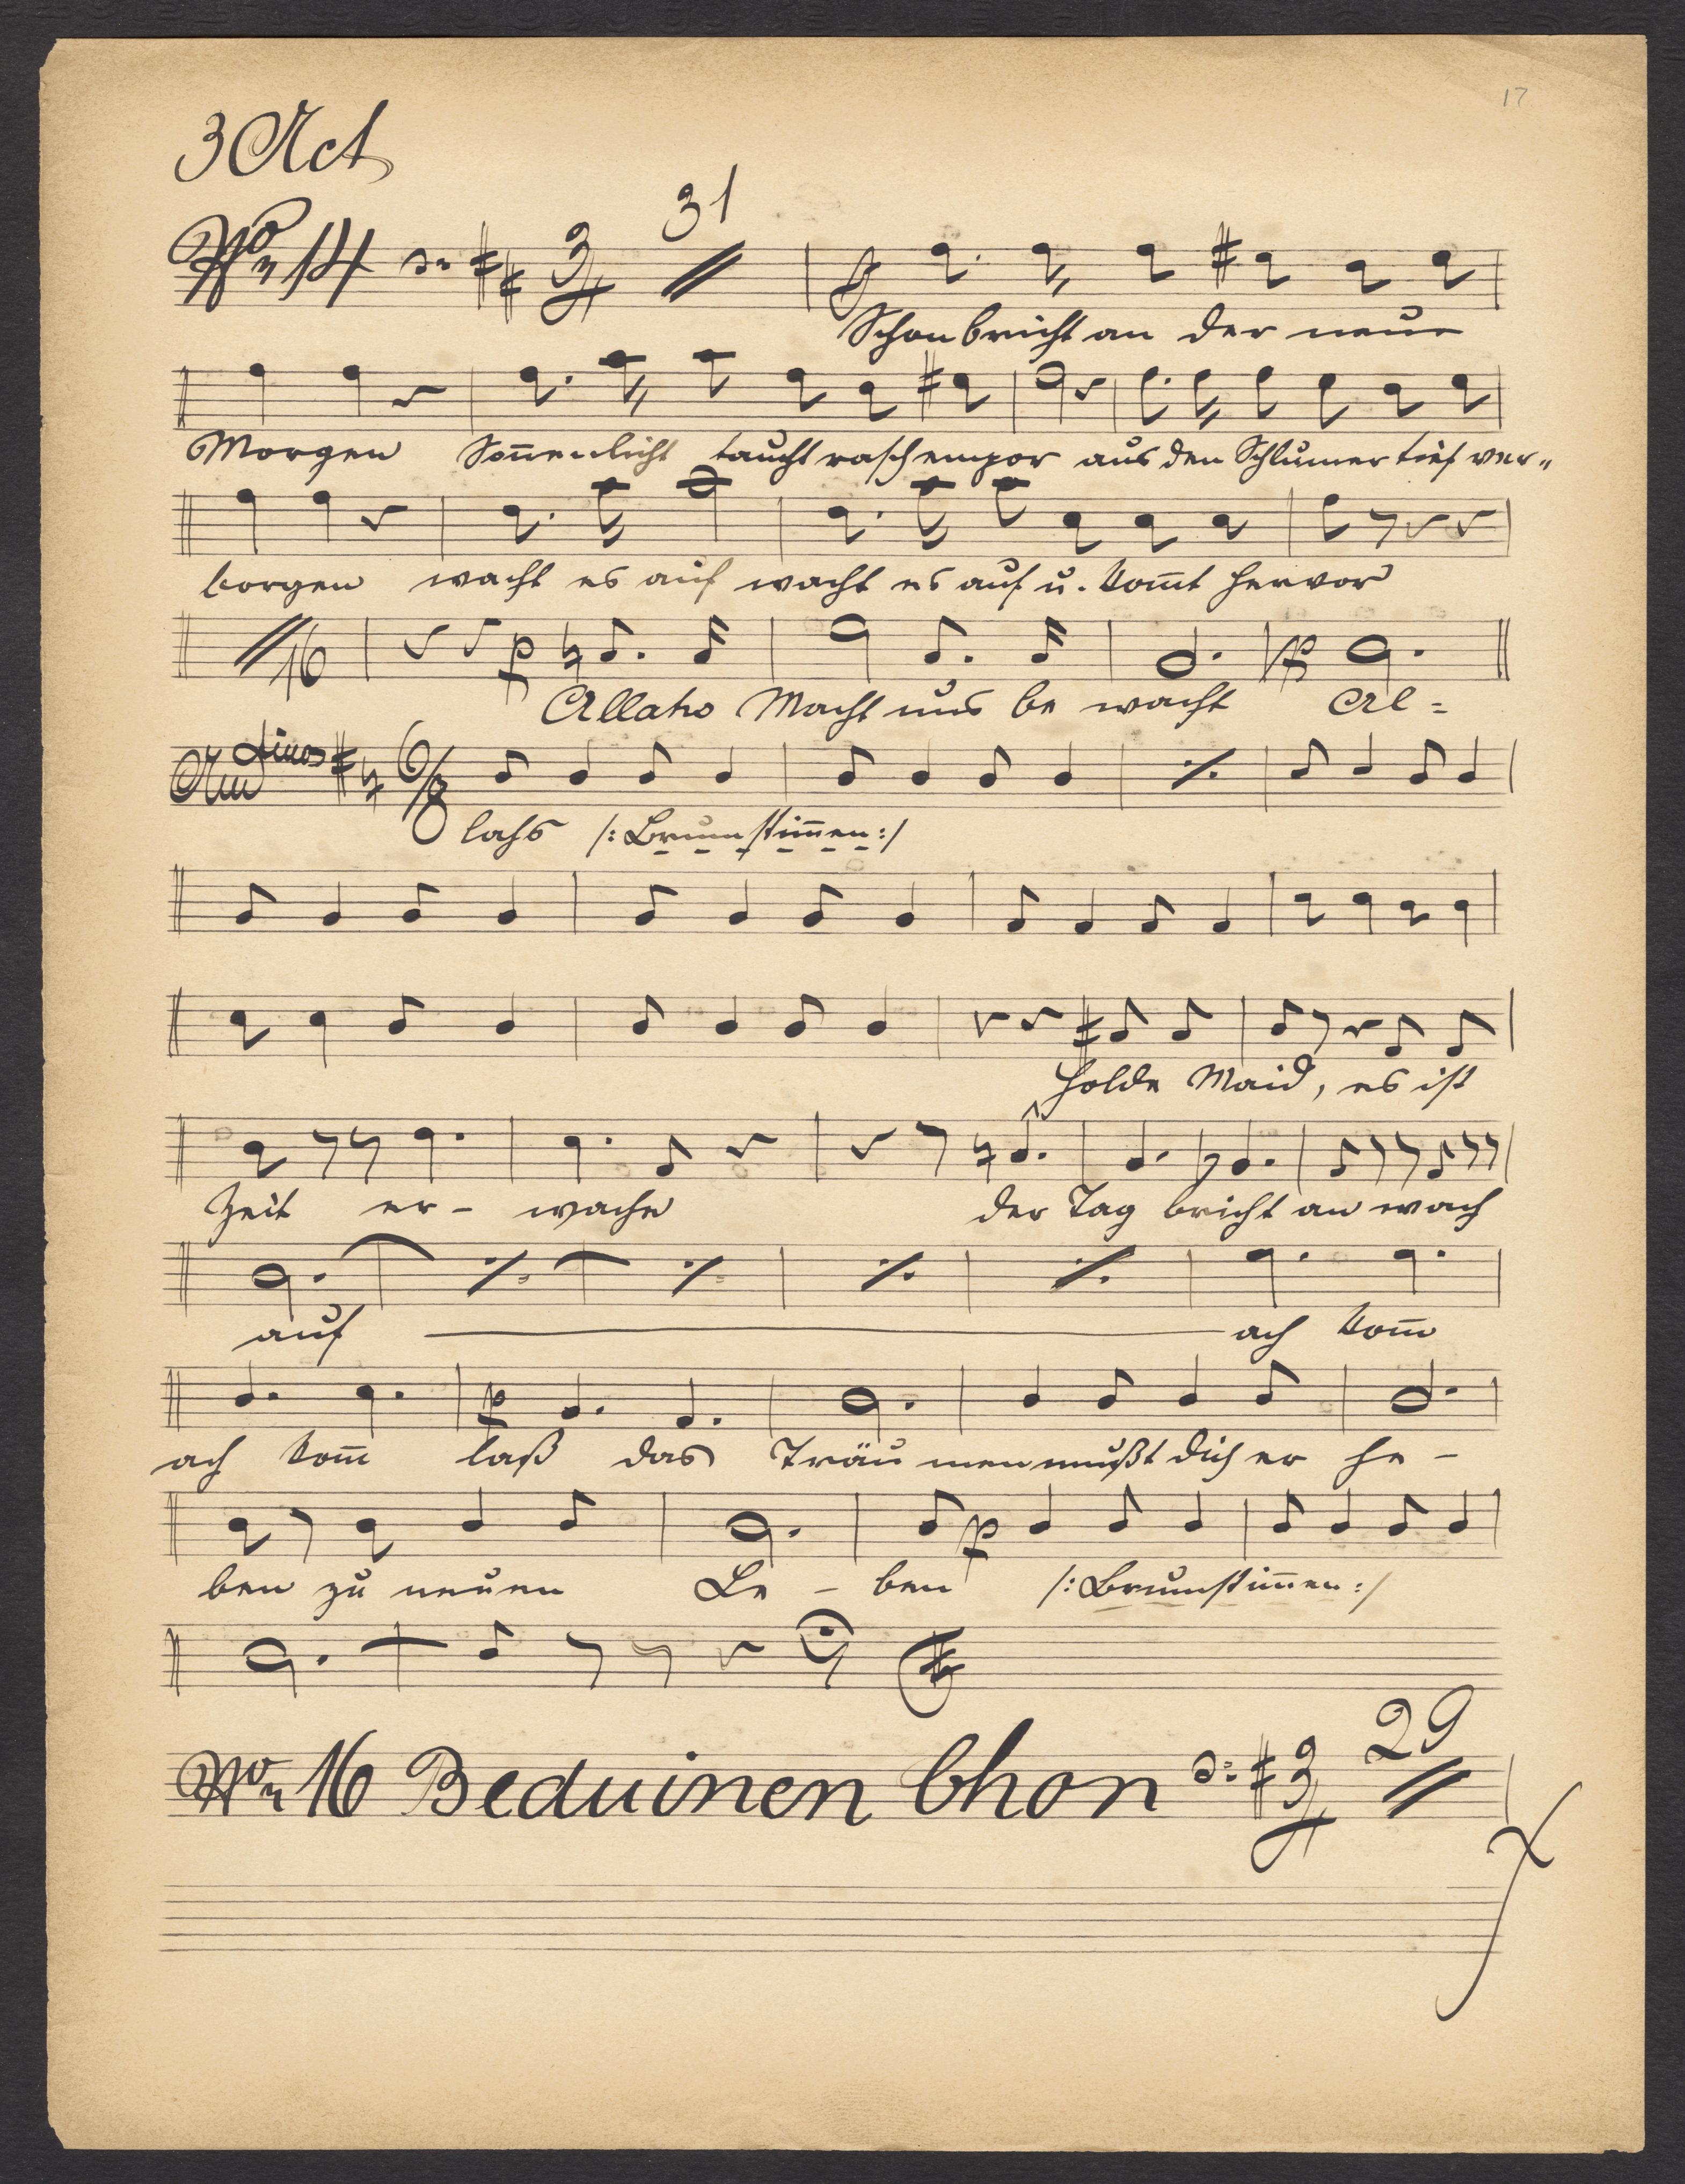 17
3 Act
No 14 3/4 31
Schon bricht an der neue
Morgen Son̄enlicht taucht rasch empor aus den Schlumer tief ver-
borgen wacht es auf wacht es auf u. kom̄t hervor
16 p pp
Allahs Macht uns be wacht Al =
6/8
lahs /: Brum̄stim̄en :/
Holde Maid, es ist
Zeit er - wache der Tag bricht an wach
auf ach kom̄
p
ach kom̄ laß das Träu men mußt dich er he -
p
ben zu neuen Le - ben /: Brumstim̄en :/
No 16 Beduinen Chor 3/4 29